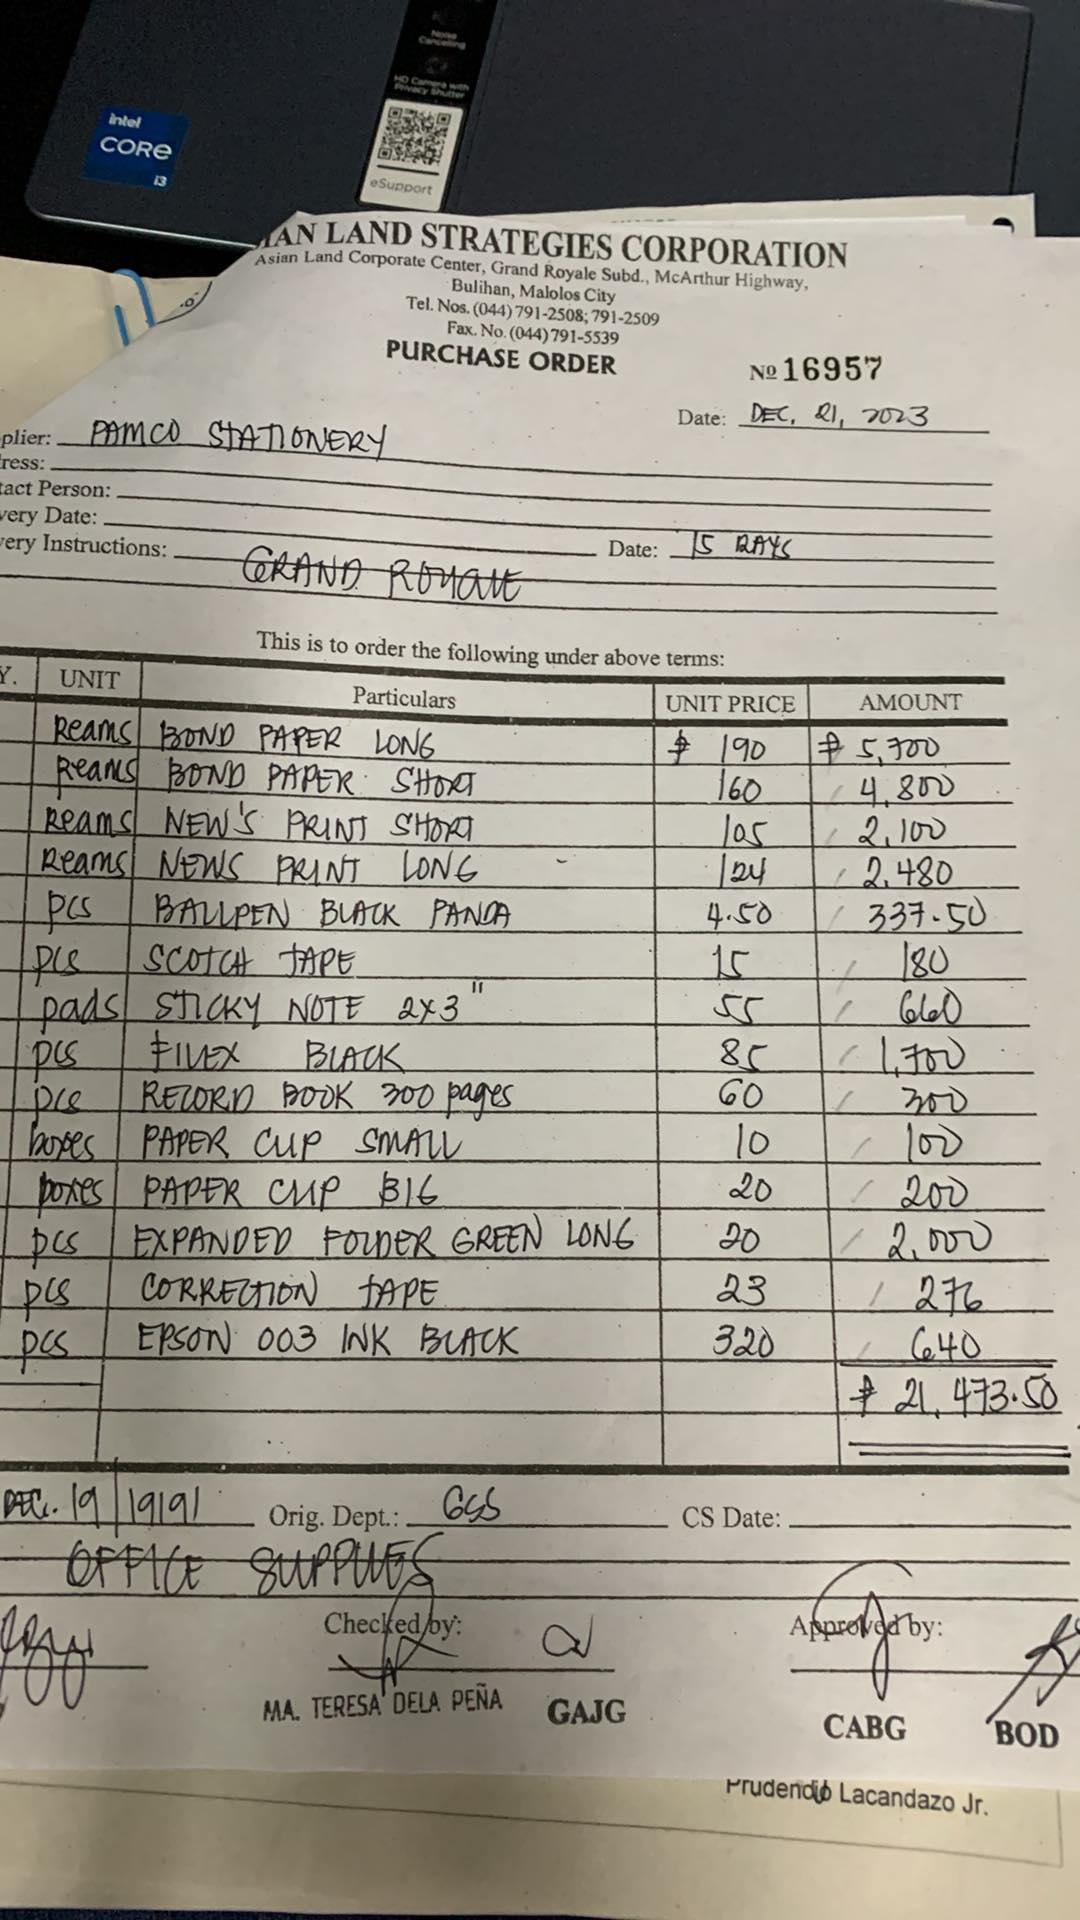 Noise
Cancelling
HD Camera with
Privacy Shutter
intel
CORe
i3
eSupport
IAN LAND STRATEGIES CORPORATION
Asian Land Corporate Center, Grand Royale Subd., McArthur Highway,
Bulihan, Malolos City
Tel. Nos. (044) 791-2508; 791-2509
Fax. No. (044) 791-5539
PURCHASE ORDER
№ 16957
Date: DEC. 21, 2023
plier: PAMCO STATIONERY
ress:
tact Person:
very Date:
very Instructions: Date: 15 DAYS
GRAND ROYALE
This is to order the following under above terms:
Y. UNIT Particulars UNIT PRICE AMOUNT
Reams BOND PAPER LONG ₱ 190 ₱ 5,700
Reams BOND PAPER SHORT 160 4,800
Reams NEW'S PRINT SHORT 105 2,100
Reams NEWS PRINT LONG 124 2,480
pcs BALLPEN BLACK PANDA 4.50 337.50
pcs SCOTCH TAPE 15 180
pads STICKY NOTE 2x3" 55 660
pcs FILEX BLACK 85 1,700
pcs RECORD BOOK 300 pages 60 300
boxes PAPER CLIP SMALL 10 100
boxes PAPER CLIP BIG 20 200
pcs EXPANDED FOLDER GREEN LONG 20 2,000
pcs CORRECTION TAPE 23 276
pcs EPSON 003 INK BLACK 320 640
₱ 21,473.50
DEC. 19 / 19191 Orig. Dept.: GSS CS Date:
OFFICE SUPPLIES
Checked by: Approved by:
MA. TERESA DELA PEÑA GAJG CABG BOD
Prudencio Lacandazo Jr.